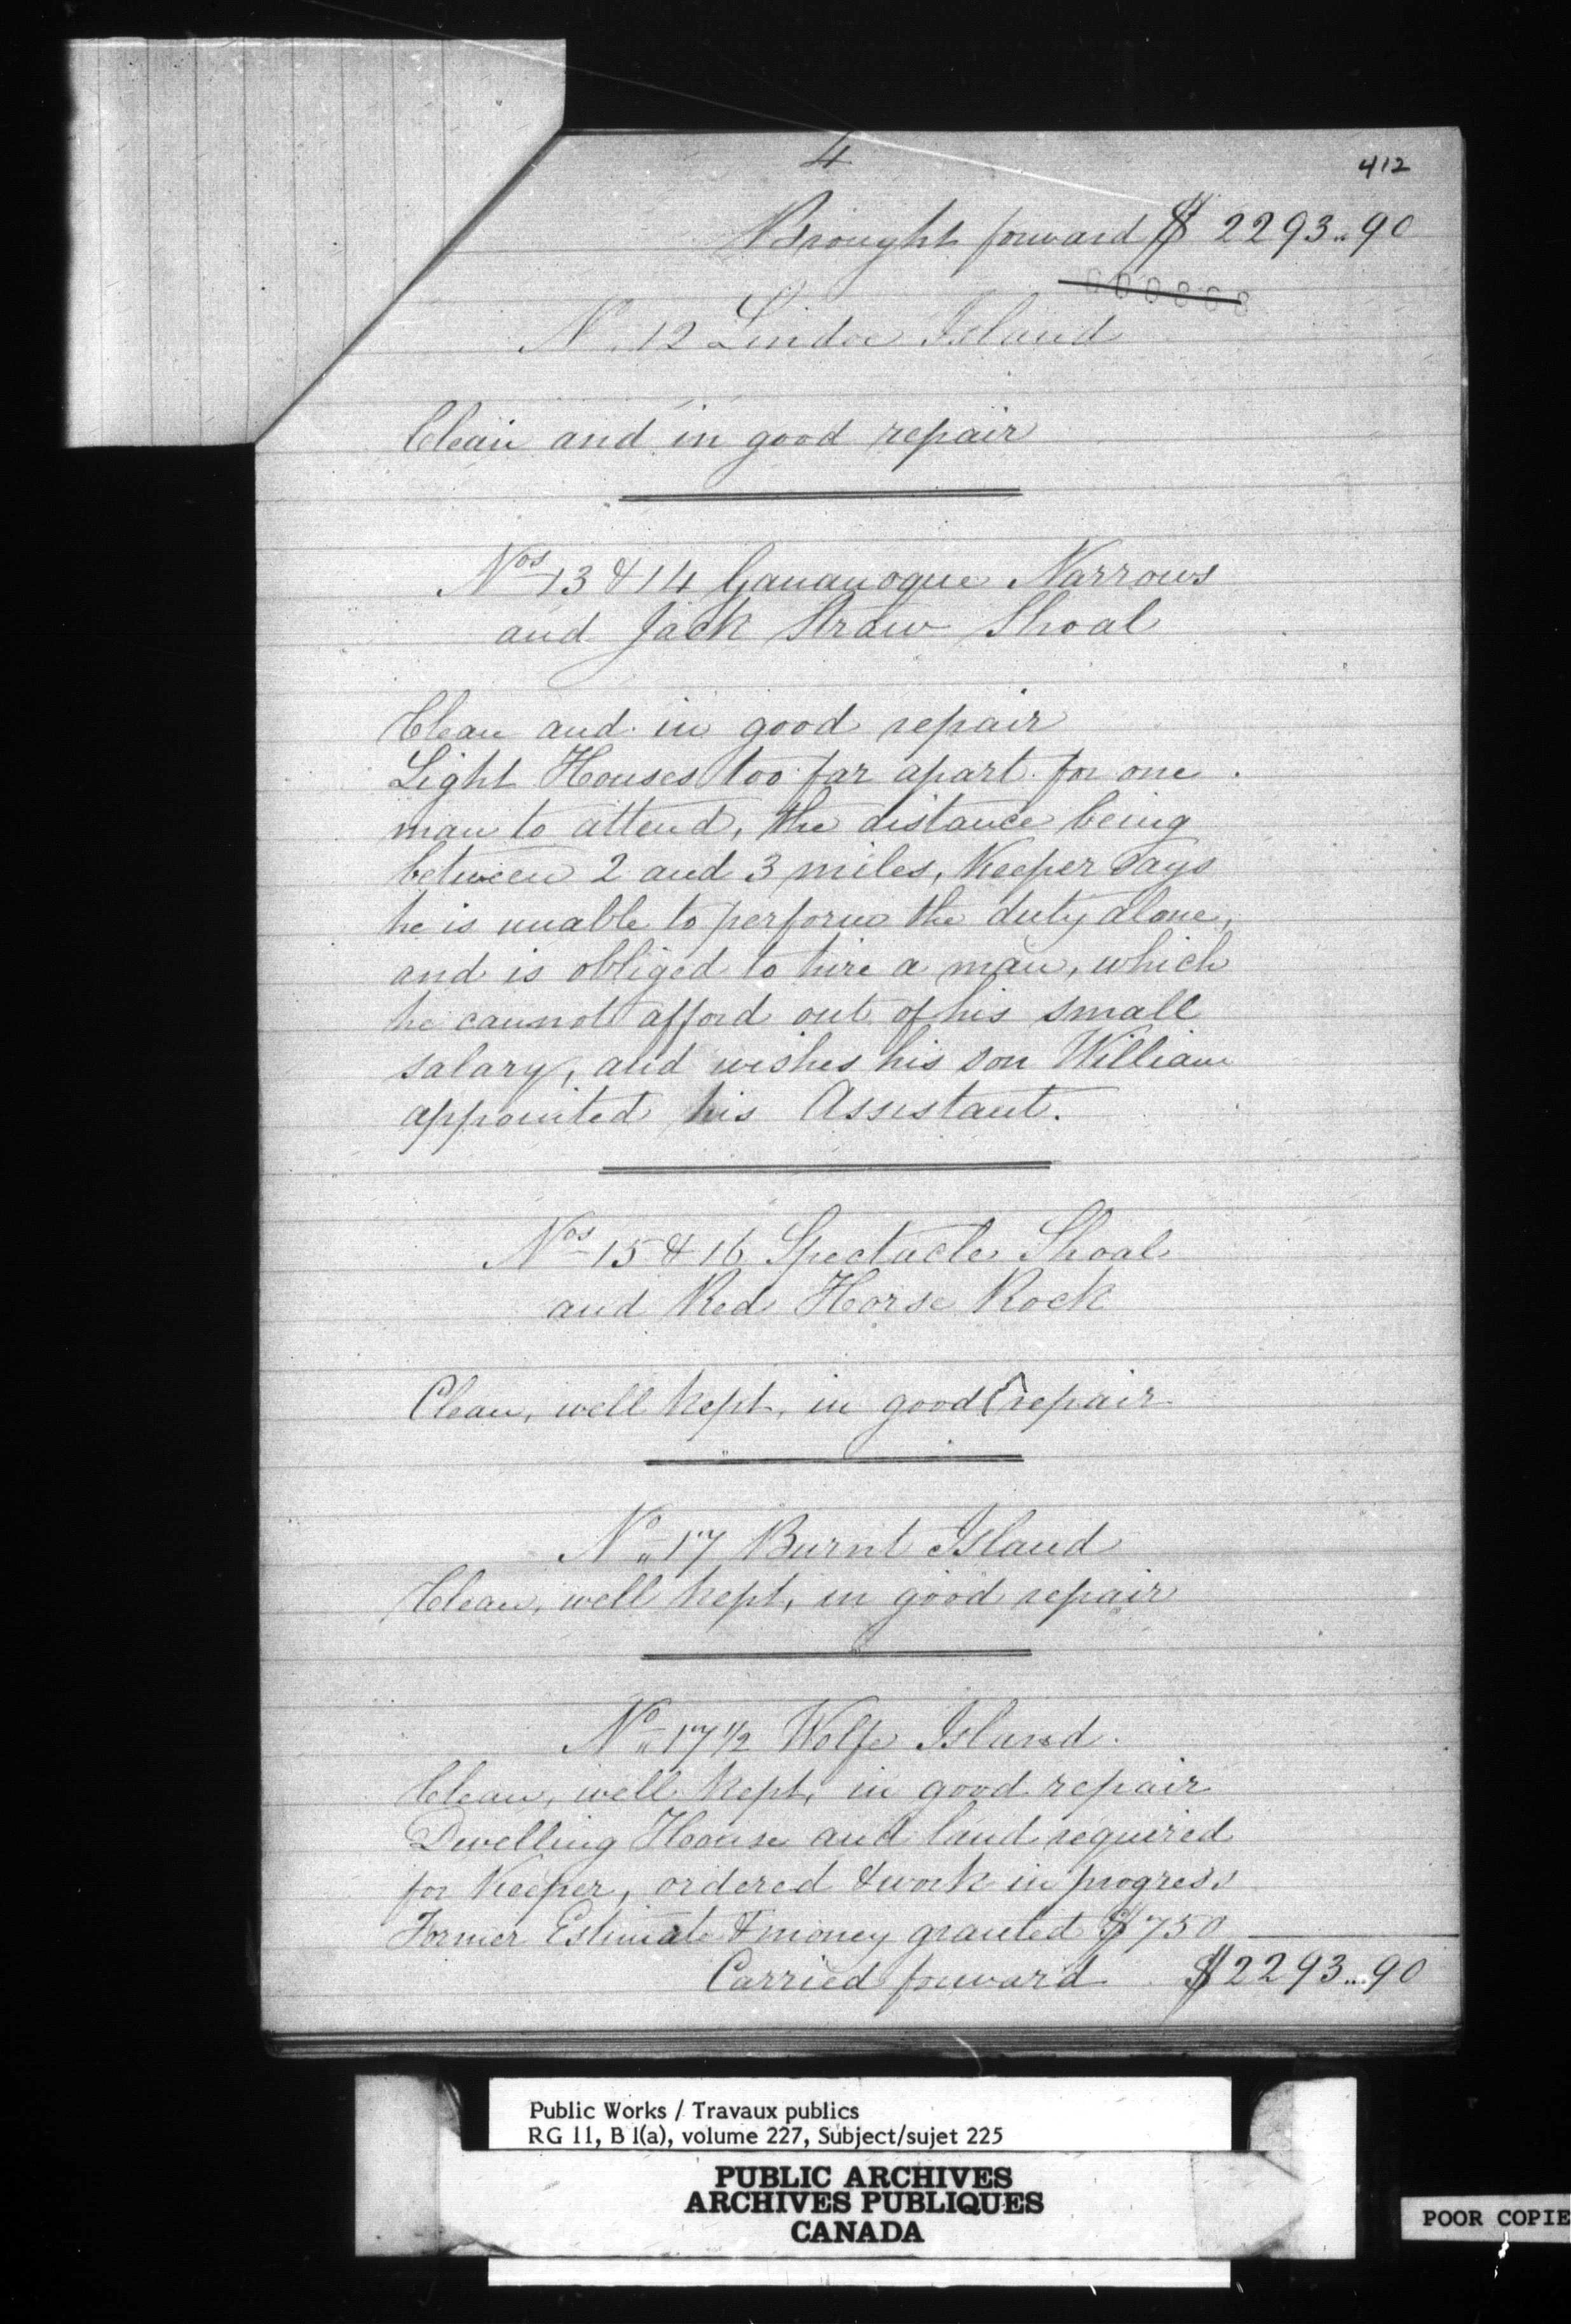 4
412
Brought forward $ 2293..90
No. 12 Lindoe Island
Clean and in good repair
Nos 13 & 14 Gananoque Narrows
and Jack Straw Shoal
Clean and in good repair
Light Houses too far apart for one
man to attend, the distance being
between 2 and 3 miles, Keeper says
he is unable to perform the duty alone,
and is obliged to hire a man, which
he cannot afford out of his small
salary, and wishes his son William
appointed his Assistant.
Nos 15 & 16 Spectacle Shoal
and Red Horse Rock
Clean, well kept, in good repair
No 17 Burnt Island
Clean, well kept, in good repair
No 17 1/2 Wolfe Island.
Clean, well kept, in good repair
Dwelling House and land required
for Keeper, ordered & work in progress
Former Estimate & money granted $750
Carried forward $2293...90
Public Works / Travaux publics
RG 11, B 1(a), volume 227, Subject/sujet 225
PUBLIC ARCHIVES
ARCHIVES PUBLIQUES
CANADA
POOR COPIE